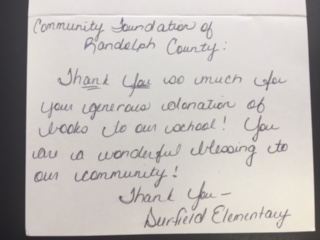 Community Foundation of
Randolph County:
Thank You so much for
your generous donation of
books to our school! You
are a wonderful blessing to
our community!
Thank You-
Durfield Elementary